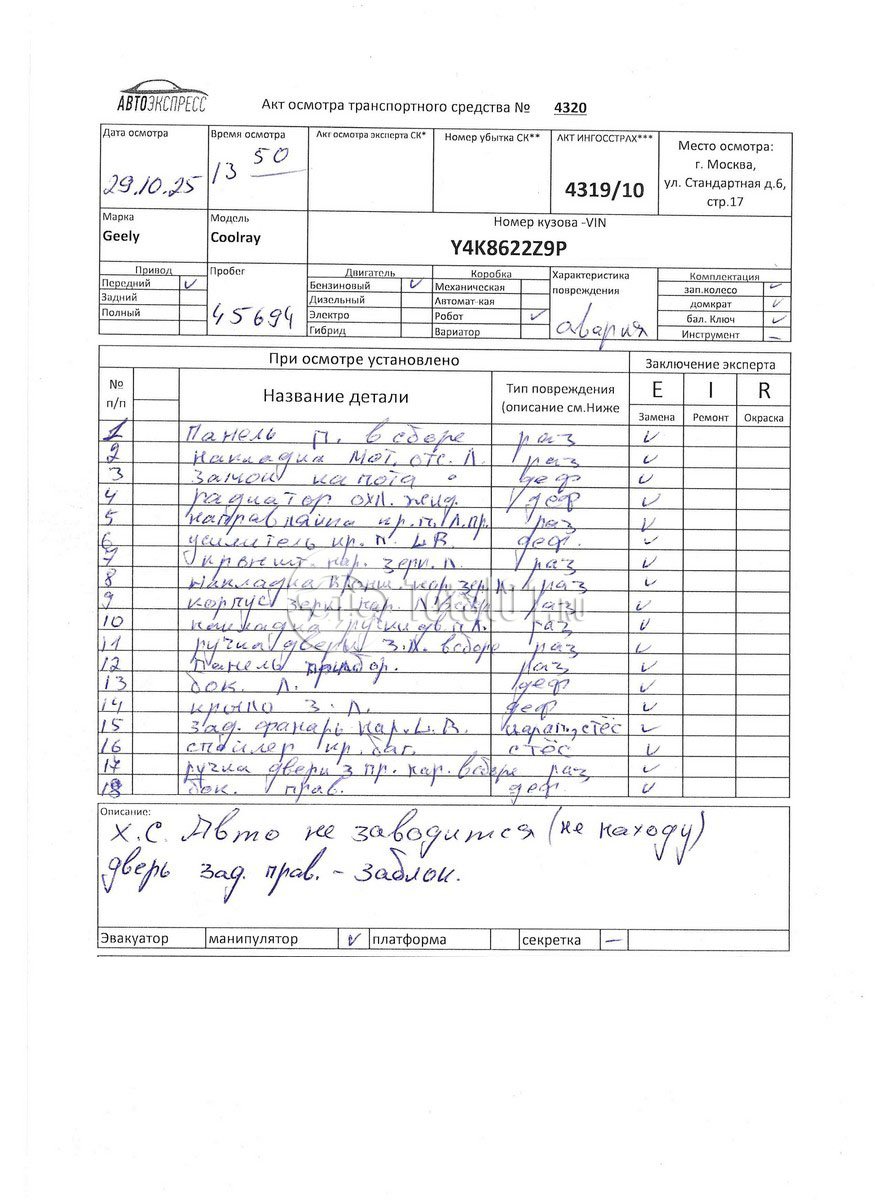 АВТОЭКСПРЕСС
Акт осмотра транспортного средства № 4320
Дата осмотра Время осмотра Акт осмотра эксперта СК* Номер убытка СК** АКТ ИНГОССТРАХ*** Место осмотра:
г. Москва,
ул. Стандартная д.6,
стр.17
29.10.25 13 50 4319/10
Марка Модель Номер кузова -VIN
Geely Coolray Y4K8622Z9P
Привод Пробег Двигатель Коробка Характеристика повреждения Комплектация
Передний ✓ Бензиновый ✓ Механическая зап.колесо ✓
Задний Дизельный Автомат-кая домкрат ✓
Полный 45694 Электро Робот ✓ авария бал. Ключ ✓
Гибрид Вариатор Инструмент –
При осмотре установлено Заключение эксперта
№ п/п Название детали Тип повреждения (описание см.Ниже E I R
Замена Ремонт Окраска
1 Панель п. в сборе раз ✓
2 накладка мот. отс. Л. раз ✓
3 Замок капота деф ✓
4 радиатор охл. жид. деф ✓
5 направляйка кр.п. Л.пр. раз ✓
6 усилитель кр. П. L.R. деф. ✓
7 крвншт. нар. зерк. Л. раз ✓
8 накладка кронш. нар зер Л раз ✓
9 корпус зерк нар. Л раз ✓
10 накладка ручки дв п Л. раз ✓
11 ручка двери З.Л. в сборе раз ✓
12 Панель прибор. раз ✓
13 бок. Л. деф ✓
14 крыло З. Л. деф ✓
15 зад. фанарь нар. L.R. царап,стёс ✓
16 спойлер кр. баг. стёс ✓
17 ручка двери з пр. нар. в сборе раз ✓
18 бок. прав. деф. ✓
Описание:
Х.С. Авто не заводится (не находу)
дверь зад. прав. – заблок.
Эвакуатор манипулятор ✓ платформа секретка –